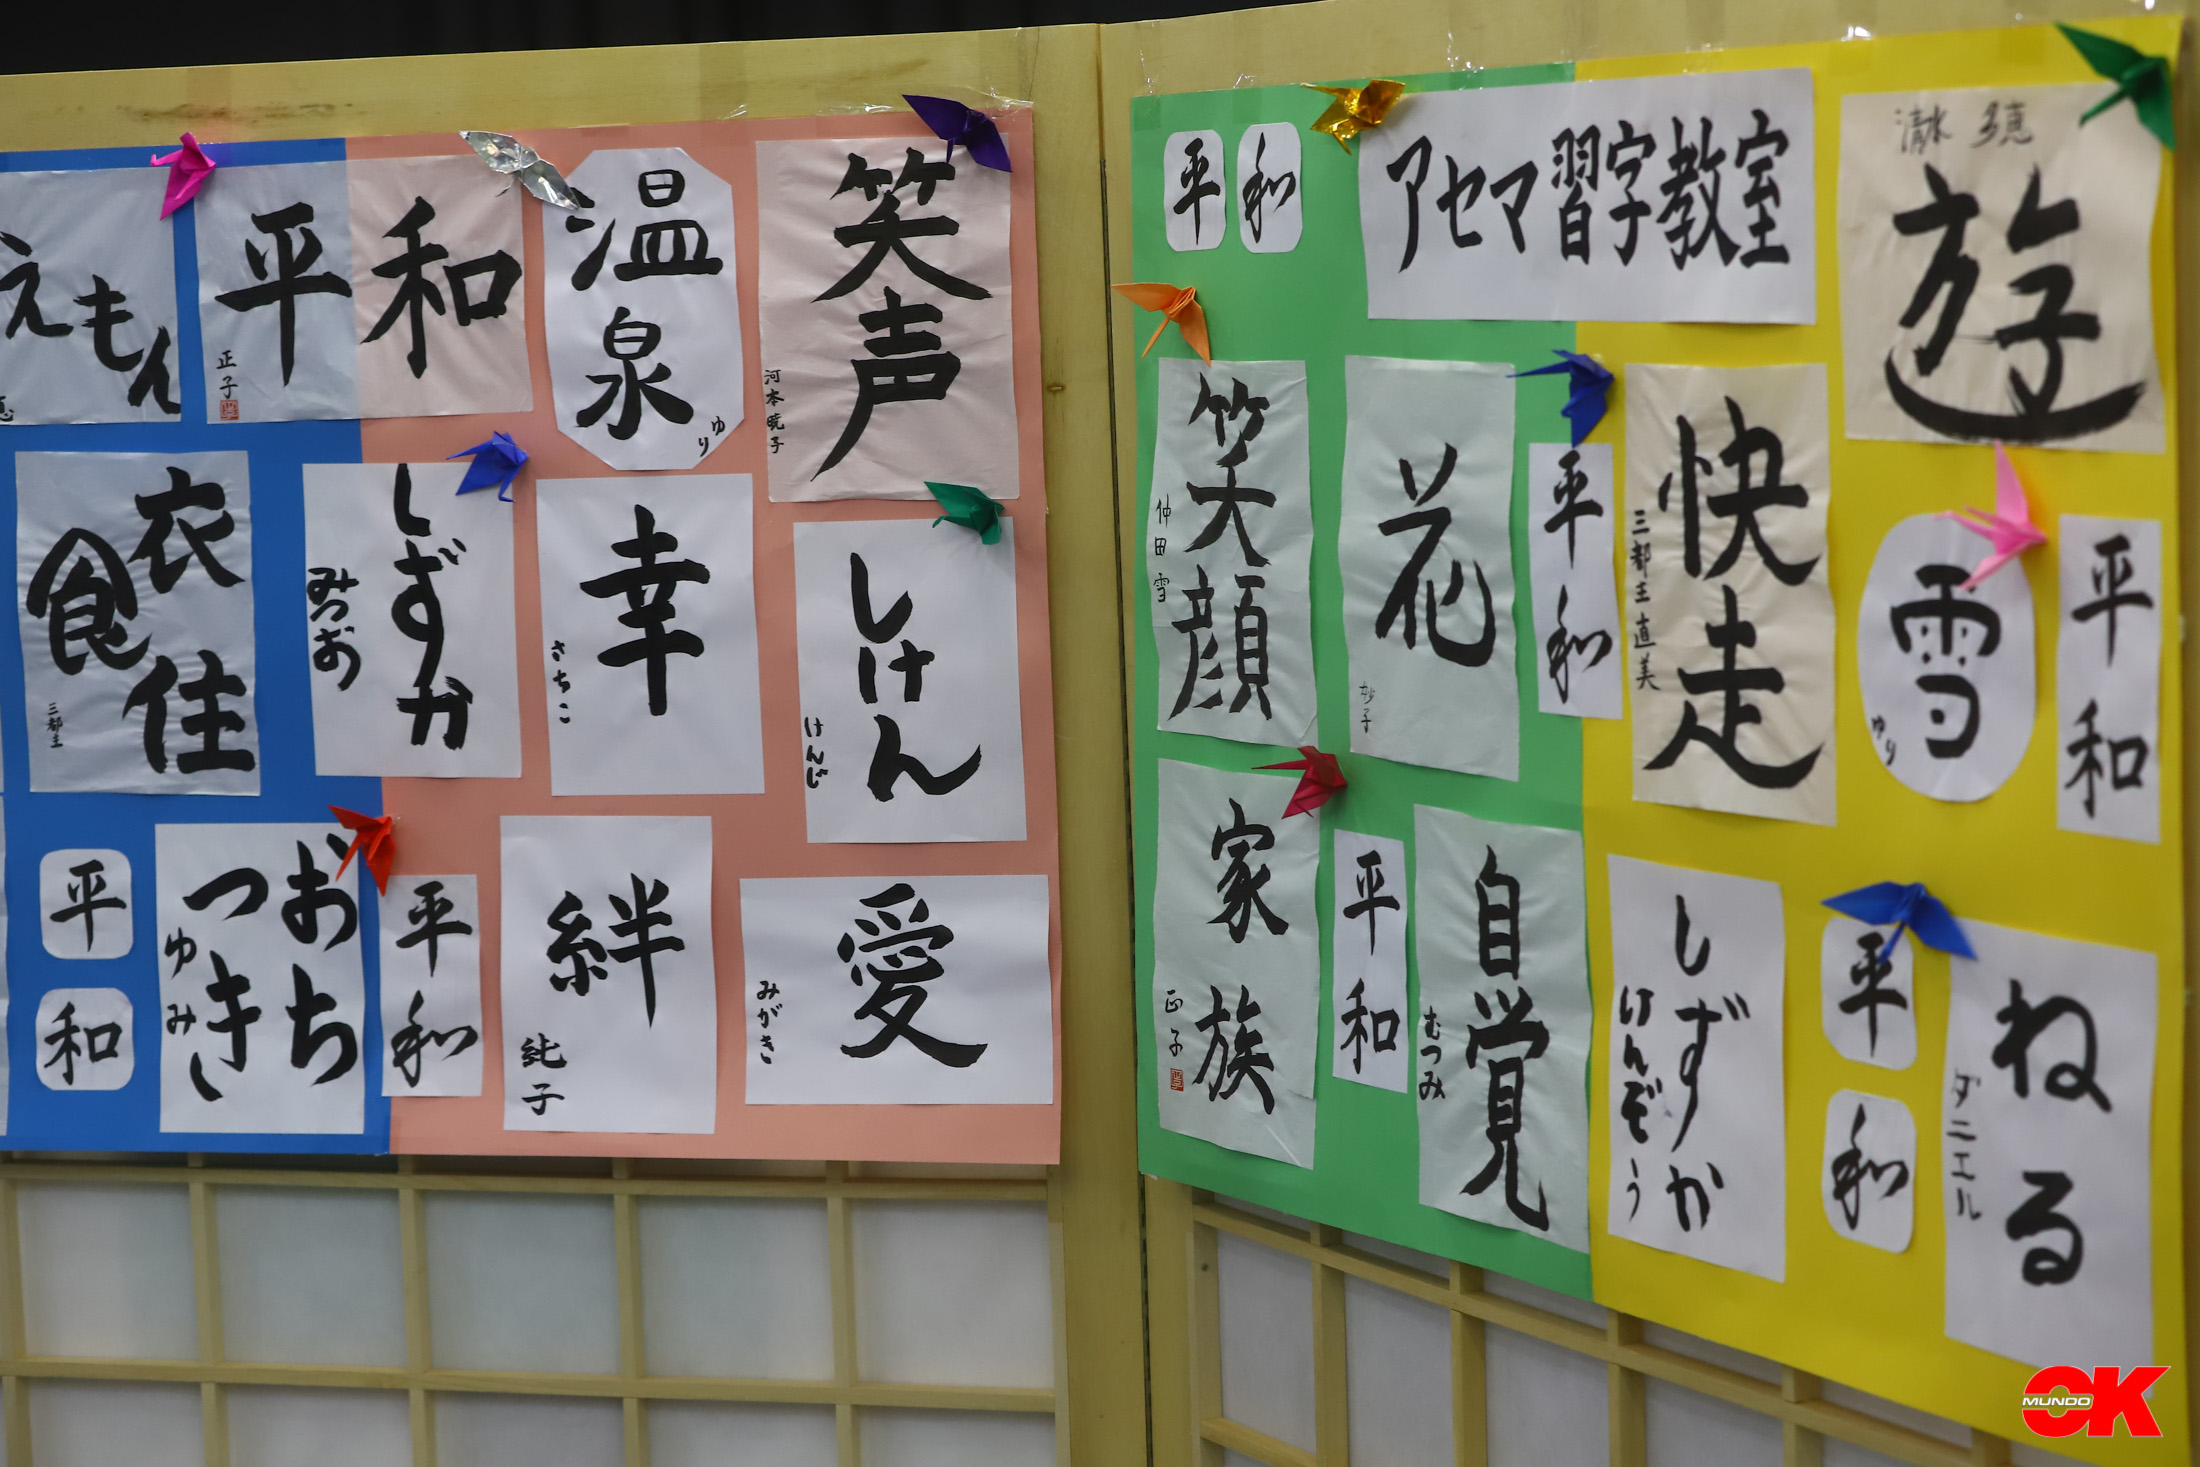 えもん
平和
正子
温泉
ゆり
笑声
河本暁子
衣
食
住
三都主
しずか
みつお
幸
さちこ
しけん
けんじ
平和
おち
つき
ゆみし
平和
絆
純子
愛
みがき
平和
アセマ習字教室
清水 多恵
遊
笑顔
仲田 雪
花
妙子
平和
快走
三都主直美
雪
ゆり
平和
家族
正子
平和
自覚
むつみ
しずか
けんぞう
平和
ねる
ダニエル
MUNDO OK